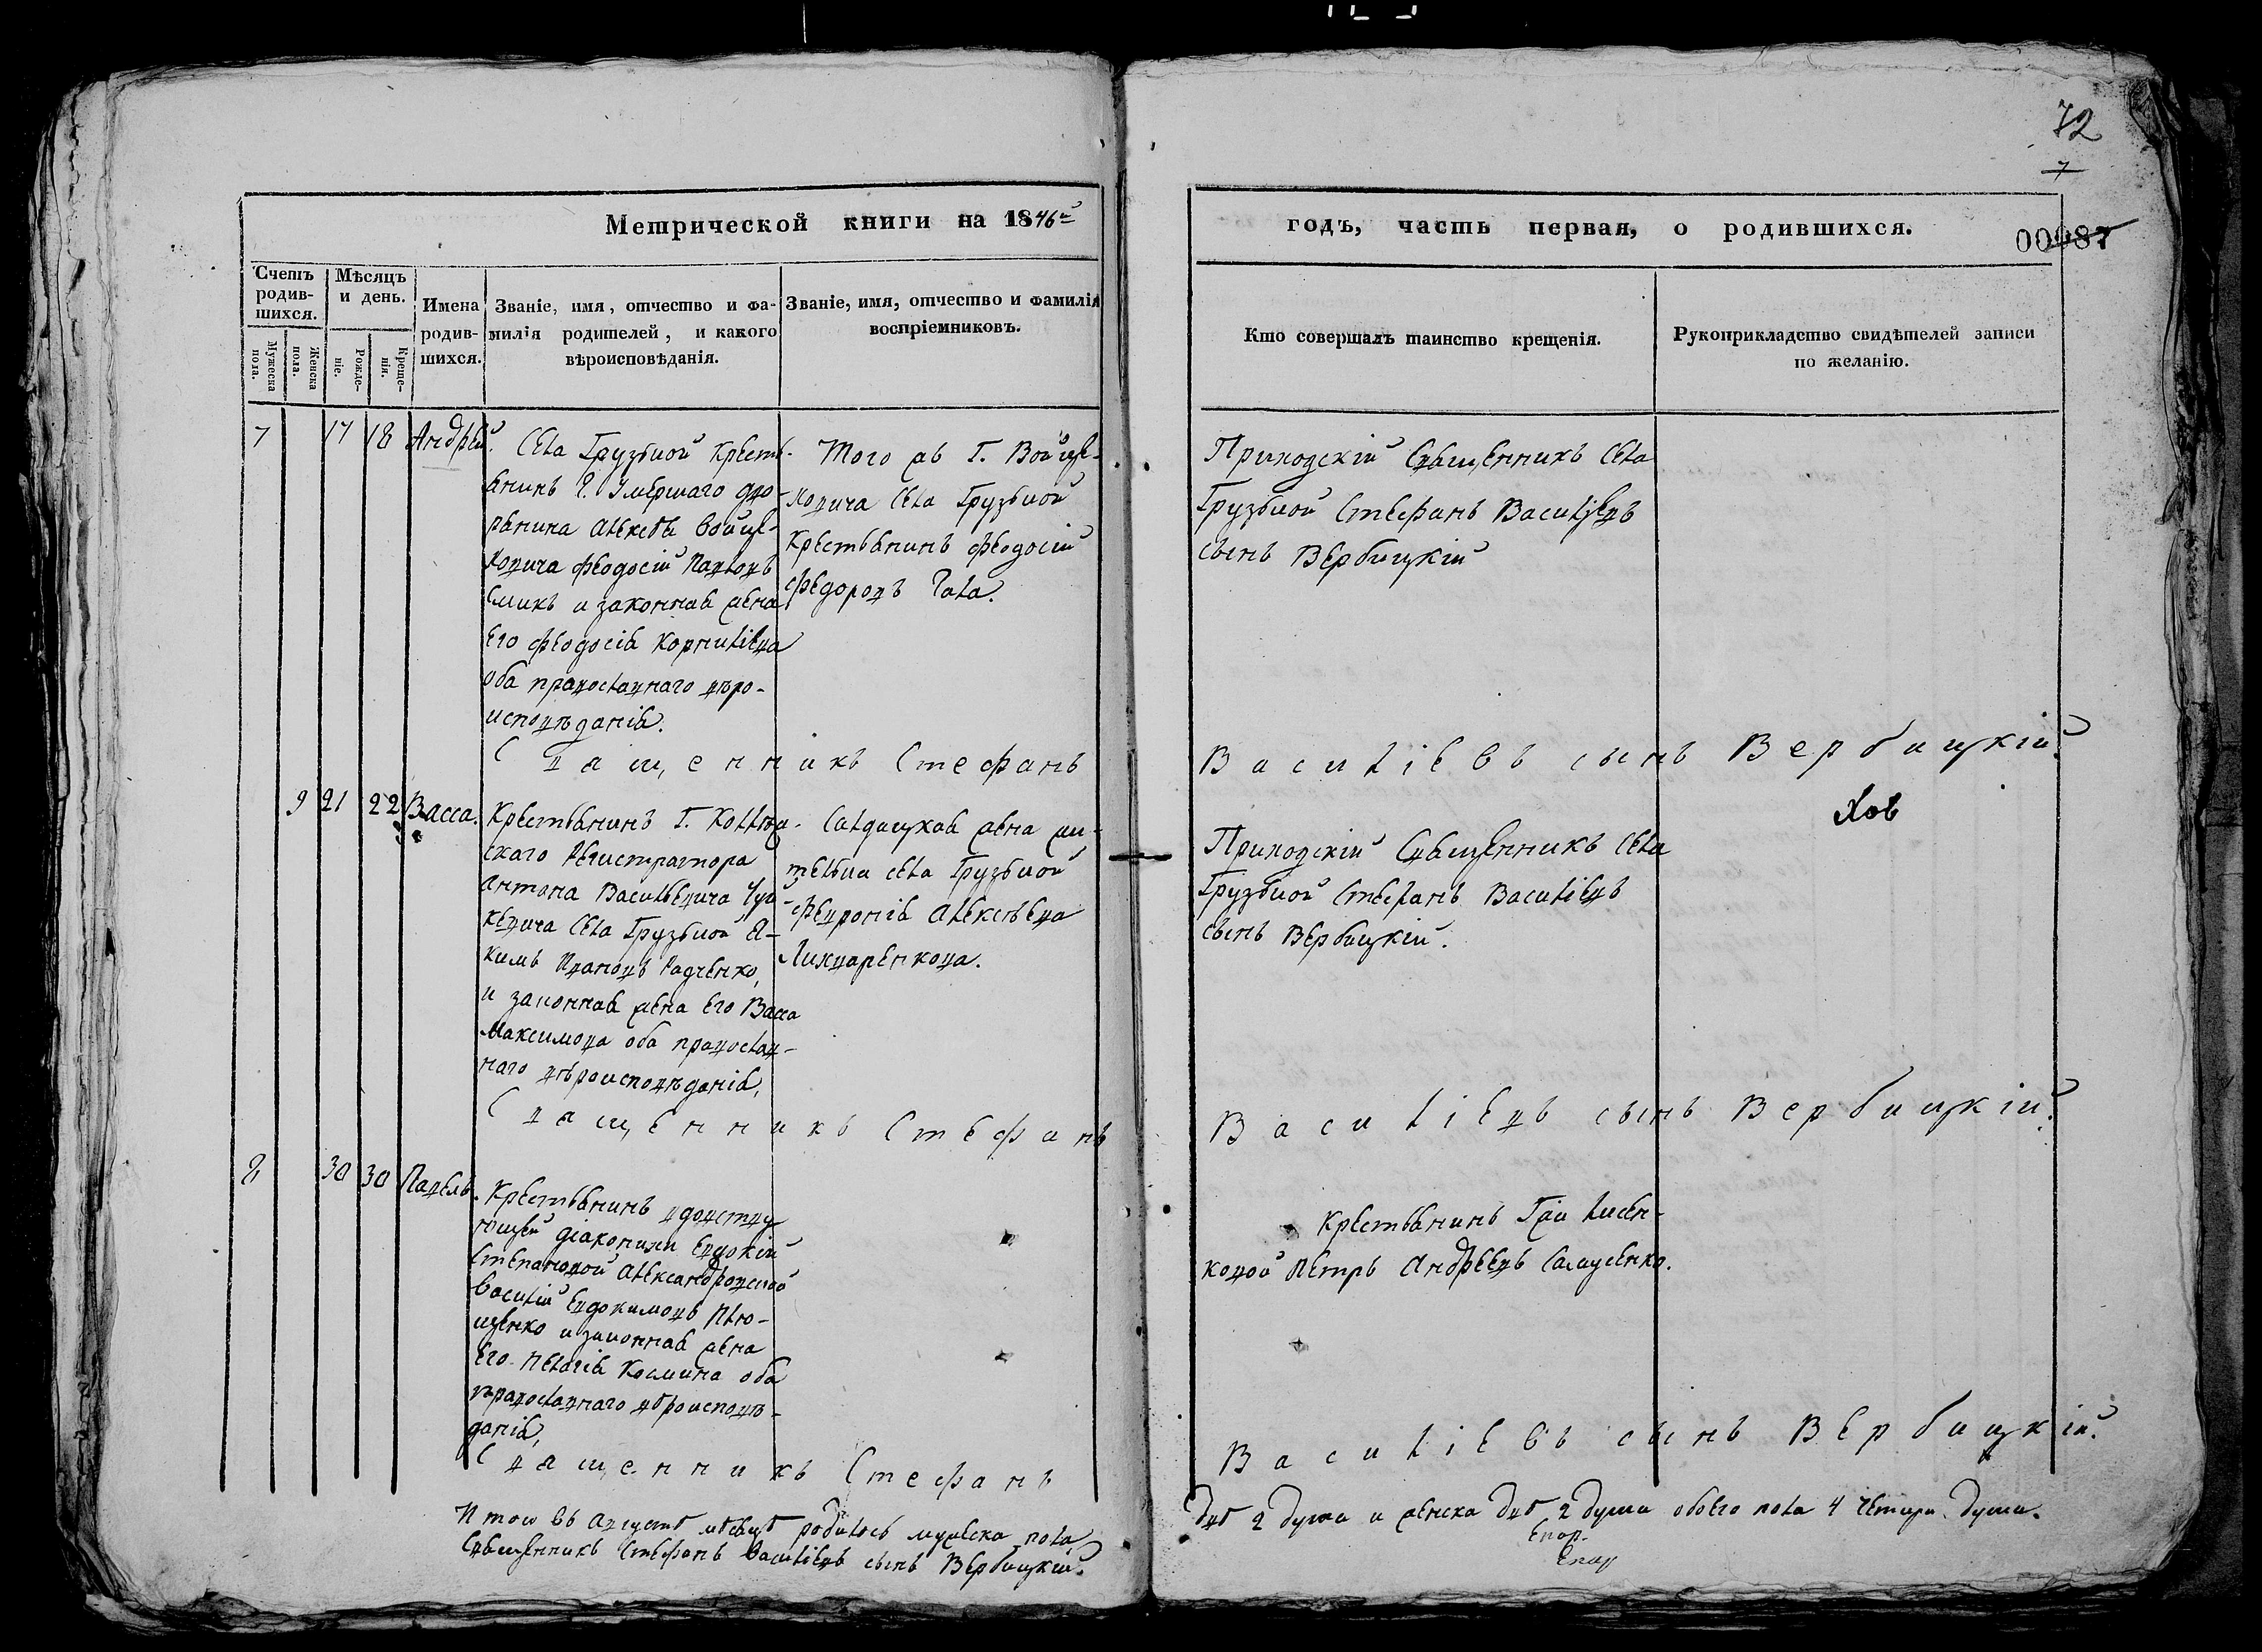 72
7
Метрической книги на 1846й
годъ, часть первая, о родившихся.
00087
Счетъ родив-шихся.
Мужеска пола.
Женска пола.
Мѣсяцъ и день.
Рожде-ніе.
Креще-нія.
Имена родив-шихся.
Званіе, имя, отчество и фа-
милія родителей, и какого
вѣроисповѣданія.
Званіе, имя, отчество и фамилія
воспріемниковъ.
Кто совершалъ таинство крещенія.
Рукоприкладство свидѣтелей записи
по желанію.
7 17 18 Андрей.
Села Грузской Кресть-
янинъ Г. Умершаго дво-
рянина Алексѣя Войце-
ховича Феодосій Павловъ
и законная жена
его Феодосія Корниліева
оба православнаго вѣро-
исповѣданія.
Того жъ Г. Войце-
ховича села Грузской
Крестьянинъ Феодосій
Федоровъ Гала.
Приходскій Священникъ Села
Грузской Стефанъ Василіевъ
сынъ Вербицкій
Священникъ Стефанъ Василіевъ сынъ Вербицкій.
9 21 22 Васса.
Крестьянинъ Г. Коллеж-
скаго Регистратора
Антона Васильевича
села Грузской Я-
кимъ Ивановъ Радченко,
и законная жена его Васса
Максимова оба православ-
наго вѣроисповѣданія,
Солдацкая жена жи-
тельца села Грузской
Февронія Алексѣева
Лихваренкова.
Приходскій Священникъ Села
Грузской Стефанъ Василіевъ
сынъ Вербицкій.
Священникъ Стефанъ Василіевъ сынъ Вербицкій.
8 30 30 Павелъ.
Крестьянинъ вдовству-
ющей діаконихи Евдокіи
Степановой Александровской
Василій Евдокимовъ Плю-
щенко и законная жена
его Пелагія Космина оба
православнаго вѣроисповѣ-
данія,
Крестьянинъ Гжи Лисен-
ковой Петръ Андреевъ
Священникъ Стефанъ Василіевъ сынъ Вербицкій.
Итого въ Августѣ мѣсяцѣ родилось мужеска пола двѣ 2 души и женска двѣ 2 души обоего пола 4 четыри души.
Священникъ Стефанъ Василіевъ сынъ Вербицкій.